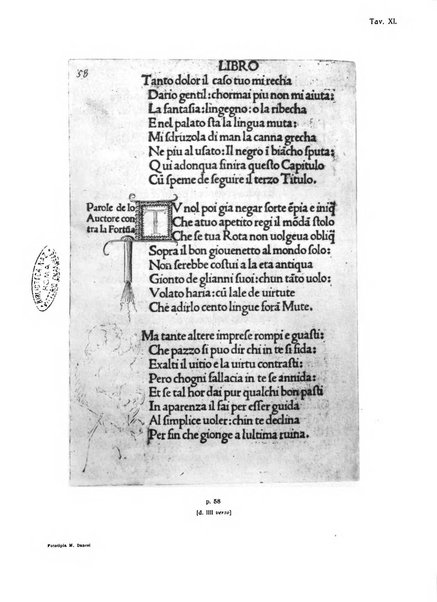 Tav. XI.
58
LIBRO
Tanto dolor il caso tuo mi recha
Dario gentil: chormai piu non mi aiuta:
La fantasia: lingegno: o la ribecha
E nel palato sta la lingua muta:
Mi sdruzola di man la canna grecha
Ne piu al usato: Il negro ī biācho sputa:
Qui adonqua finira questo Capitulo
Cū speme de seguire il terzo Titulo.
Parole de lo
Auctore con
tra la Fortūa
U nol poi gia negar sorte ēpia e iniq̄
Che atuo apetito regi il mōdā stolo
Che se tua Rota non uolgeua obliq̄
Sopra il bon giouenetto al mondo solo:
Non serebbe costui a la eta antiqua
Gionto de glianni suoi: chun tāto uolo:
Volato haria: cū lale de uirtute
Che adirlo cento lingue forā Mute.
Ma tante altere imprese rompi e guasti:
Che pazzo si puo dir chi in te si fida:
Exalti il uitio e la uirtu contrasti:
Pero chogni fallacia in te se annida:
Et se tal hor dai pur qualchi bon pasti
In aparenza il fai per esser guida
Al simplice uoler: chin te declina
Per fin che gionge a lultima ruina.
p. 58
[d. IIII verso]
Fototipia M. Danesi